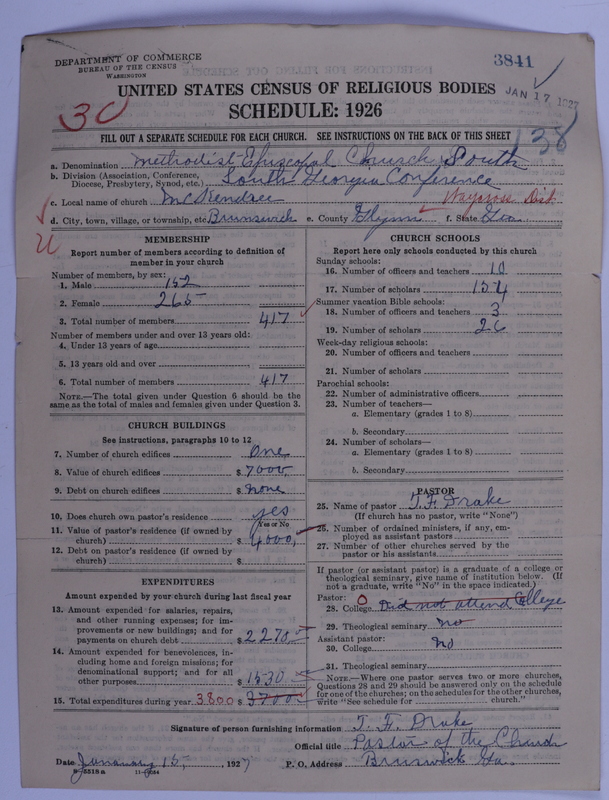 DEPARTMENT OF COMMERCE
BUREAU OF THE CENSUS
WASHINGTON
3841
JAN 17 1927
UNITED STATES CENSUS OF RELIGIOUS BODIES
30
SCHEDULE: 1926
138
FILL OUT A SEPARATE SCHEDULE FOR EACH CHURCH. SEE INSTRUCTIONS ON THE BACK OF THIS SHEET
a. Denomination Methodist Episcopal Church, South
b. Division (Association, Conference, Diocese, Presbytery, Synod, etc.) South Georgia Conference
c. Local name of church McKendree Waycross Dist
d. City, town, village, or township, etc. Brunswick e. County Glynn f. State Ga.
U
MEMBERSHIP
Report number of members according to definition of
member in your church
Number of members, by sex:
1. Male 152
2. Female 265
3. Total number of members 417
Number of members under and over 13 years old:
4. Under 13 years of age
5. 13 years old and over
6. Total number of members 417
NOTE.—The total given under Question 6 should be
same as the total of males and females given under Question 3.
CHURCH BUILDINGS
See instructions, paragraphs 10 to 12
7. Number of church edifices One
8. Value of church edifices $ 7000
9. Debt on church edifices $ none
10. Does church own pastor's residence yes
Yes or No
11. Value of pastor's residence (if owned by
church) $ 4000
12. Debt on pastor's residence (if owned by
church) $
EXPENDITURES
Amount expended by your church during last fiscal year
13. Amount expended for salaries, repairs,
and other running expenses; for im-
provements or new buildings; and for
payments on church debt $ 2270
14. Amount expended for benevolences, in-
cluding home and foreign missions; for
denominational support; and for all
other purposes $ 1530
15. Total expenditures during year 3800 $ 3700
CHURCH SCHOOLS
Report here only schools conducted by this church
Sunday schools:
16. Number of officers and teachers 10
17. Number of scholars 154
Summer vacation Bible schools:
18. Number of officers and teachers 3
19. Number of scholars 26
Week-day religious schools:
20. Number of officers and teachers
21. Number of scholars
Parochial schools:
22. Number of administrative officers
23. Number of teachers—
a. Elementary (grades 1 to 8)
b. Secondary
24. Number of scholars—
a. Elementary (grades 1 to 8)
b. Secondary
PASTOR
25. Name of pastor T. F. Drake
(If church has no pastor, write "None")
26. Number of ordained ministers, if any, em-
ployed as assistant pastors
27. Number of other churches served by the
pastor or his assistants
If pastor (or assistant pastor) is a graduate of a college or
theological seminary, give name of institution below. (If
not a graduate, write "No" in the space indicated.)
Pastor: O
28. College Did not attend College
29. Theological seminary no
Assistant pastor:
30. College no
31. Theological seminary
NOTE.—Where one pastor serves two or more churches,
Questions 28 and 29 should be answered only on the schedule
for one of the churches; on the schedules for the other churches,
write "See schedule for church."
Signature of person furnishing information T. F. Drake
Official title Pastor of the Church
Date January 15, 1927 P. O. Address Brunswick Ga.